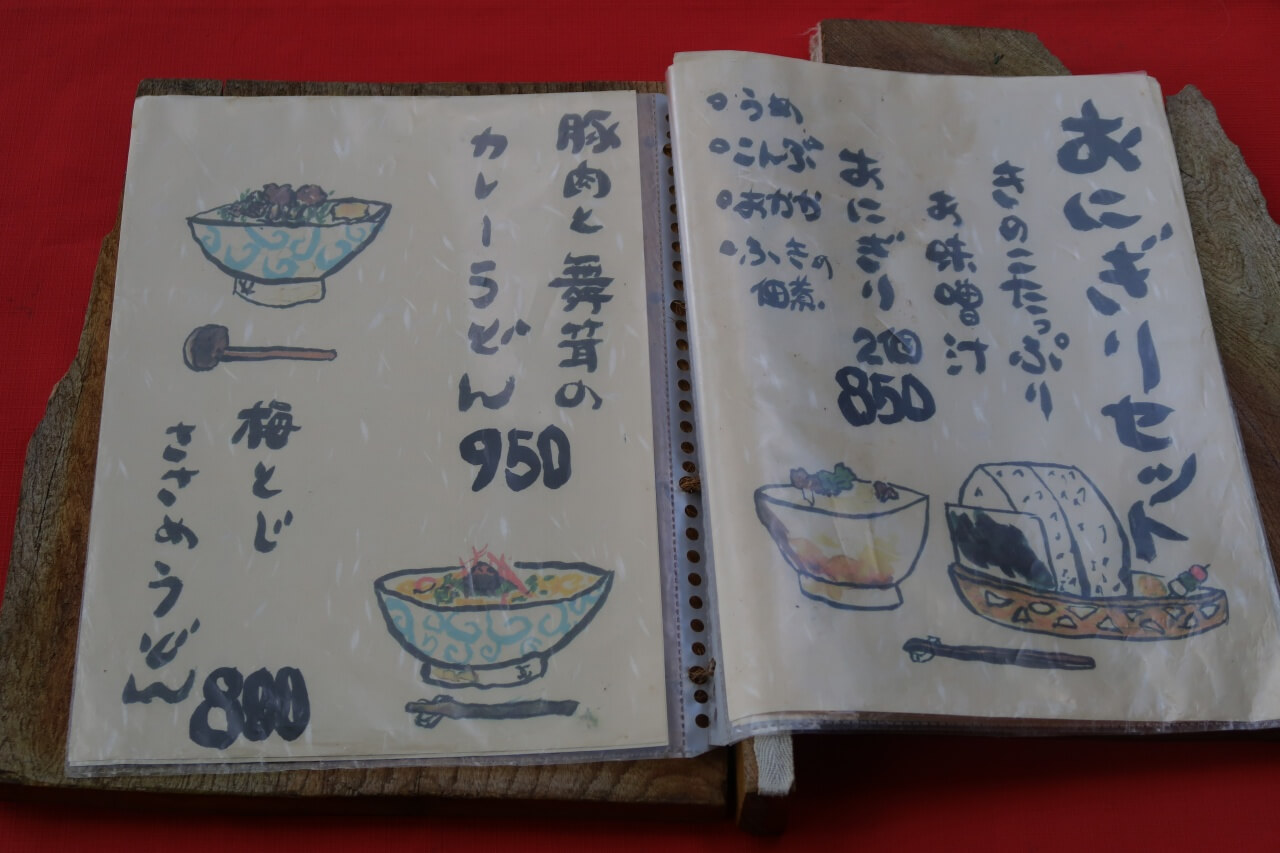 おにぎりセット
きのこたっぷり
お味噌汁
おにぎり2個
850
・うめ
・こんぶ
・おかか
・ふきの
佃煮
豚肉と舞茸の
カレーうどん
950
梅とじ
ささめうどん
800